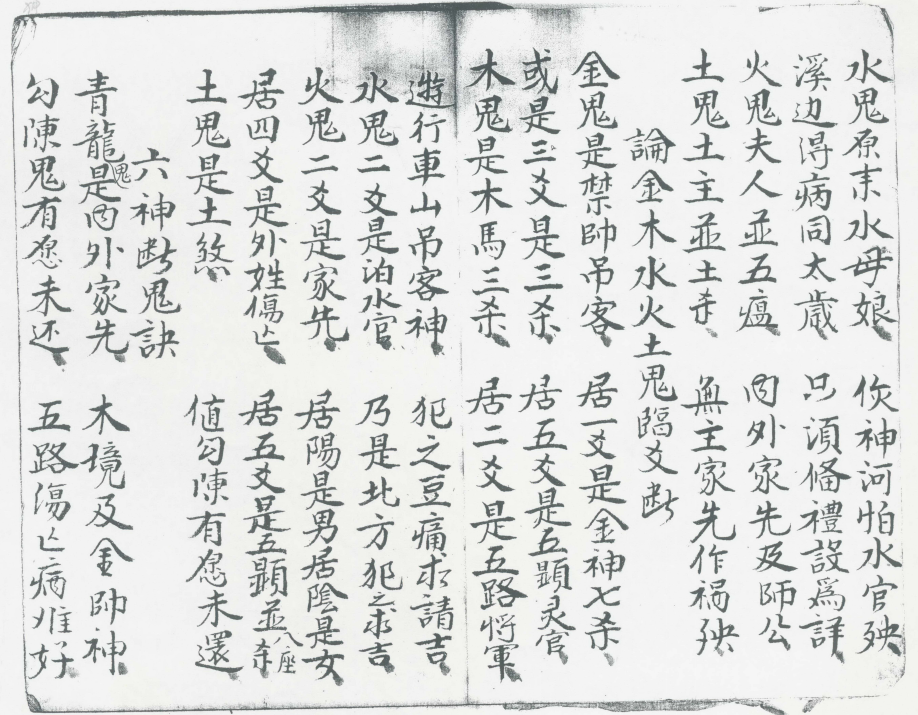 水鬼原来水母娘 伙神河怕水官殃
溪边得病同太歲 只須俻禮設為詳
火鬼夫人並五瘟 内外家先及師公
土鬼土主並土杀 無主家先作禍殃
論金木水火土鬼臨爻断
金鬼是禁師吊客 居一爻是金神七杀
或是三爻是三杀 居五爻是五顯灵官
木鬼是木馬三杀 居二爻是五路将軍
遊行車山吊客神 犯之豆痛求請吉
水鬼二爻是泊水官 乃是北方犯之求吉
火鬼二爻是家先 居陽是男居陰是女
居四爻是外姓傷亡 居五爻是五顯並八座杀
土鬼是土煞 值勾陳有愿未還
六神断鬼訣
青龍鬼是内外家先 木境及金師神
勾陳鬼有愿未还 五路傷亡病难好